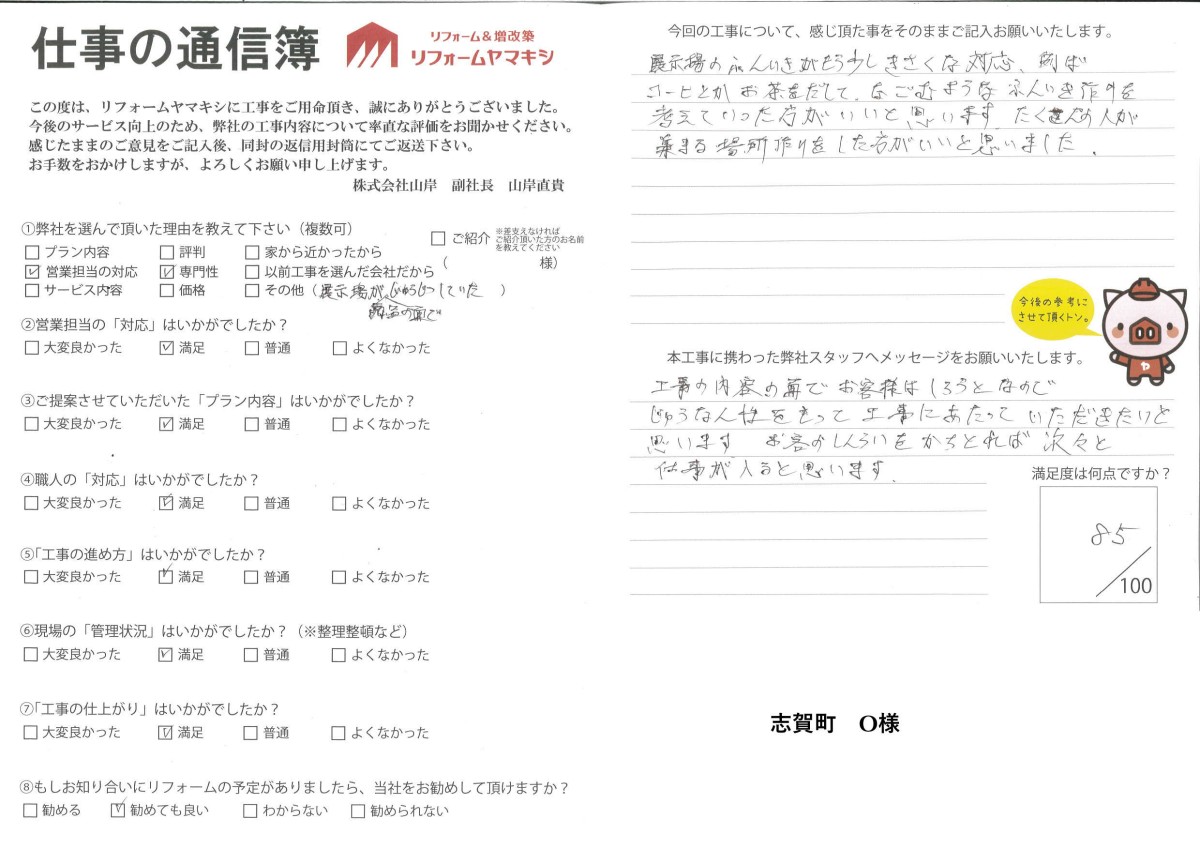 仕事の通信簿
リフォーム＆増改築
リフォームヤマキシ
この度は、リフォームヤマキシに工事をご用命頂き、誠にありがとうございました。
今後のサービス向上のため、弊社の工事内容について率直な評価をお聞かせください。
感じたままのご意見をご記入後、同封の返信用封筒にてご返送下さい。
お手数をおかけしますが、よろしくお願い申し上げます。
株式会社山岸　副社長　山岸直貴
①弊社を選んで頂いた理由を教えて下さい（複数可）
□ プラン内容　□ 評判　□ 家から近かったから
☑ 営業担当の対応　☑ 専門性　□ 以前工事を選んだ会社だから
□ サービス内容　□ 価格　□ その他（展示場がじゅうじつしていた　）
商品の面で
□ ご紹介 ※差支えなければ
ご紹介頂いた方のお名前
を教えてください
（　様）
②営業担当の「対応」はいかがでしたか？
□ 大変良かった　☑ 満足　□ 普通　□ よくなかった
③ご提案させていただいた「プラン内容」はいかがでしたか？
□ 大変良かった　☑ 満足　□ 普通　□ よくなかった
④職人の「対応」はいかがでしたか？
□ 大変良かった　☑ 満足　□ 普通　□ よくなかった
⑤「工事の進め方」はいかがでしたか？
□ 大変良かった　☑ 満足　□ 普通　□ よくなかった
⑥現場の「管理状況」はいかがでしたか？（※整理整頓など）
□ 大変良かった　☑ 満足　□ 普通　□ よくなかった
⑦「工事の仕上がり」はいかがでしたか？
□ 大変良かった　☑ 満足　□ 普通　□ よくなかった
⑧もしお知り合いにリフォームの予定がありましたら、当社をお勧めして頂けますか？
□ 勧める　☑ 勧めても良い　□ わからない　□ 勧められない
今回の工事について、感じ頂た事をそのままご記入お願いいたします。
展示場のふんいきがもう少しきさくな対応、例ば
コーヒとか お茶をだして、なごむような ふんいき作りを
考えていった方がいいと思います たくさんの人が
集まる場所作りをした方がいいと思いました．
今後の参考に
させて頂くトン。
ヤ
本工事に携わった弊社スタッフへメッセージをお願いいたします。
工事の内容の面で お客様はしろうとなので
じゅうなん性をもって 工事にあたって いただきたいと
思います お客のしんらいを かちとれば 次々と
仕事が入ると思います．
満足度は何点ですか？
85
／100
志賀町　O様